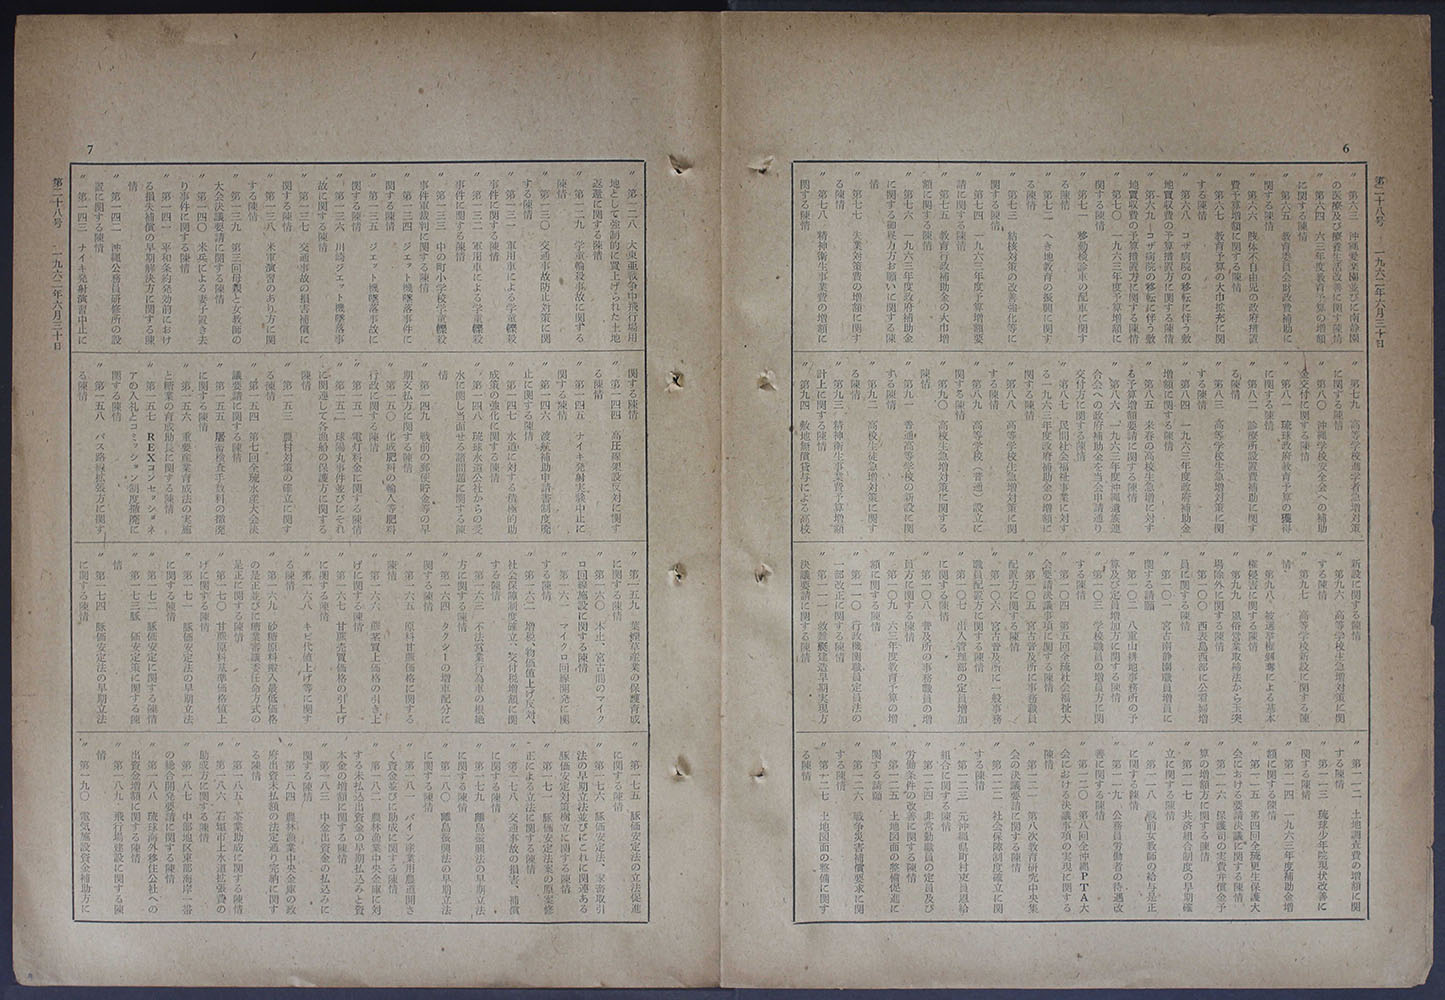 6
第二十八号 一九六二年六月三十日
〃 第六三 沖縄愛楽園並びに南静園
の医療及び療養生活改善に関する陳情
〃 第六四 六三年度教育予算の増額
に関する陳情
〃 第六五 教育委員会財政費補助に
関する陳情
〃 第六六 肢体不自由児の政府措置
費予算増額に関する陳情
〃 第六七 教育予算の大巾拡充に関
する陳情
〃 第六八 コザ病院の移転に伴う敷
地買収費の予算措置方に関する陳情
〃 第六九 コザ病院の移転に伴う敷
地買収費の予算措置方に関する陳情
〃 第七〇 一九六三年度予算増額に
関する陳情
〃 第七一 移動検診車の配車に関す
る陳情
〃 第七二 へき地教育の振興に関す
る陳情
〃 第七三 結核対策の改善強化等に
関する陳情
〃 第七四 一九六三年度予算増額要
請に関する陳情
〃 第七五 教育行政補助金の大巾増
額に関する陳情
〃 第七六 一九六三年度政府補助金
に関する御尽力方お願いに関する陳
情
〃 第七七 失業対策費の増額に関す
る陳情
〃 第七八 精神衛生事業費の増額に
関する陳情
〃 第七九 高等学校進学者急増対策
に関する陳情
〃 第八〇 沖縄学校安全会への補助
金交付に関する陳情
〃 第八一 琉球政府教育予算の獲得
に関する陳情
〃 第八二 診療所設置費補助に関す
る陳情
〃 第八三 高等学校生急増対策に関
する陳情
〃 第八四 一九六三年度政府補助金
増額に関する陳情
〃 第八五 来春の高校生急増に対す
る予算増額要請に関する陳情
〃 第八六 一九六三年度沖縄遺族連
合会への政府補助金を当会申請通り
交付方に関する陳情
〃 第八七 民間社会福祉事業に対す
る一九六三年度政府補助金の増額に
関する陳情
〃 第八八 高等学校生急増対策に関
する陳情
〃 第八九 高等学校(普通)設立に
関する陳情
〃 第九〇 高校生急増対策に関する
陳情
〃 第九一 普通高等学校の新設に関
する陳情
〃 第九二 高校生徒急増対策に関す
る陳情
〃 第九三 精神衛生事業費予算増額
計上に関する陳情
〃 第九四 敷地無償貸与による高校
新設に関する陳情
〃 第九六 高等学校生急増対策に関
する陳情
〃 第九七 高等学校新設に関する陳
情
〃 第九八 被選挙権剥奪による基本
権侵害に関する陳情
〃 第九九 風俗営業取締法から玉突
場除外に関する陳情
〃 第一〇〇 西表島西部に公看婦増
員に関する陳情
〃 第一〇一 宮古南静園職員増員に
関する請願
〃 第一〇二 八重山耕地事務所の予
算及び定員増加方に関する陳情
〃 第一〇三 学校職員の増員方に関
する陳情
〃 第一〇四 第五回全琉社会福祉大
会要請決議事項に関する陳情
〃 第一〇五 宮古普及所に事務職員
配置方に関する陳情
〃 第一〇六 宮古普及所に一般事務
職員配置方に関する陳情
〃 第一〇七 出入管理部の定員増加
に関する陳情
〃 第一〇八 普及所の事務職員の増
員方陳に関する陳情
〃 第一〇九 六三年度教育予算の増
額に関する陳情
〃 第一一〇 行政機関職員定員法の
一部改正に関する陳情
〃 第一一一 救難艇建造早期実現方
決議要請に関する陳情
〃 第一一二 土地調査費の増額に関
する陳情
〃 第一一三 琉球少年院現状改善に
関する陳情
〃 第一一四 一九六三年度補助金増
額に関する陳情
〃 第一一五 第四回全琉更生保護大
会における要請決議に関する陳情
〃 第一一六 保護司の実費弁償金予
算の増額方に関する陳情
〃 第一一七 共済組合制度の早期確
立に関する陳情
〃 第一一八 戦前女教師の給与是正
に関する陳情
〃 第一一九 公務員労働者の待遇改
善に関する陳情
〃 第一二〇 第八回全沖縄PTA大
会における決議事項の実現に関する
陳情
〃 第一二一 第八次教育研究中央集
会の決議要請に関する陳情
〃 第一二二 社会保障制度確立に関
する陳情
〃 第一二三 元沖縄県町村吏員恩給
組合に関する陳情
〃 第一二四 非常勤職員の定員及び
労働条件の改善に関する陳情
〃 第一二五 土地図面の整備促進に
関する請願
〃 第一二六 戦争災害補償要求に関
する陳情
〃 第一二七 土地図面の整備に関す
る陳情
7
〃 第一二八 大東亜戦争中飛行場用
地として強制的に買上げられた土地
返還に関する陳情
〃 第一二九 学童輪禍事故に関する
陳情
〃 第一三〇 交通事故防止対策に関
する陳情
〃 第一三一 軍用車による学童轢殺
事件に関する陳情
〃 第一三二 軍用車による学童轢殺
事件に関する陳情
〃 第一三三 中の町小学校学童轢殺
事件軍裁判に関する陳情
〃 第一三四 ジェット機墜落事件に
関する陳情
〃 第一三五 ジェット機墜落事故に
関する陳情
〃 第一三六 川崎ジェット機墜落事
故に関する陳情
〃 第一三七 交通事故の損害補償に
関する陳情
〃 第一三八 米軍演習のあり方に関
する陳情
〃 第一三九 第三回母親と女教師の
大会決議要請に関する陳情
〃 第一四〇 米兵による妻子置き去
り事件に関する陳情
〃 第一四一 平和条約発効前におけ
る損失補償の早期解決方に関する陳
情
〃 第一四二 沖縄公務員研修所の設
置に関する陳情
〃 第一四三 ナイキ発射演習中止に
関する陳情
〃 第一四四 高圧線架設反対に関す
る陳情
〃 第一四五 ナイキ発射実験中止に
関する陳情
〃 第一四六 渡航補助申請書制度廃
止に関する陳情
〃 第一四七 水道に対する積極的助
成策の強化に関する陳情
〃 第一四八 琉球水道公社からの受
水に関し当面せる諸問題に関する陳
情
〃 第一四九 戦前の郵便貯金等の早
期支払方に関する陳情
〃 第一五〇 化成肥料の輸入等肥料
行政に関する陳情
〃 第一五一 電灯料金に関する陳情
〃 第一五二 球陽丸事件並びにそれ
に関連して各漁船の保護方に関する
陳情
〃 第一五三 農村対策の確立に関す
る陳情
〃 第一五四 第七回全琉水産大会決
議要請に関する陳情
〃 第一五五 屠畜検査手数料の撤廃
に関する陳情
〃 第一五六 重要産業育成法の実施
と糖業の育成助長に関する陳情
〃 第一五七 REXコンセッショネ
アの入札とコミッション制度撤廃に
関する陳情
〃 第一五八 バス路線拡張方に関す
る陳情
〃 第一五九 葉煙草産業の保護育成
に関する陳情
〃 第一六〇 本土、宮古間のマイク
ロ回線施設に関する陳情
〃 第一六一 マイクロ回線開発に関
する陳情
〃 第一六二 増税、物価値上げ反対、
社会保障制度確立、交付税増額に関
する陳情
〃 第一六三 不法営業行為車の根絶
方に関する陳情
〃 第一六四 タクシーの増車配分に
関する陳情
〃 第一六五 原料甘蔗価格に関する
陳情
〃 第一六六 蔗茎買上価格の引き上
げに関する陳情
〃 第一六七 甘蔗売買価格の引上げ
に関する陳情
〃 第一六八 キビ代値上げ等に関す
る陳情
〃 第一六九 砂糖原料搬入最低価格
の是正並びに糖業審議委任命方式の
是正に関する陳情
〃 第一七〇 甘蔗原料基準価格値上
げに関する陳情
〃 第一七一 豚価安定法の早期立法
に関する陳情
〃 第一七二 豚価安定に関する陳情
〃 第一七三 豚価安定策に関する陳
情
〃 第一七四 豚価安定法の早期立法
に関する陳情
〃 第一七五 豚価安定法の立法促進
に関する陳情
〃 第一七六 豚価安定法、家畜取引
法の早期立法並びにこれに関連ある
豚価安定対策樹立に関する陳情
〃 第一七七 豚価安定法案の原案修
正による立法に関する陳情
〃 第一七八 交通事故の損害、補償
に関する陳情
〃 第一七九 離島振興法の早期立法
に関する陳情
〃 第一八〇 離島振興法の早期立法
に関する陳情
〃 第一八一 パイン産業用農道開さ
く資金並びに助成に関する陳情
〃 第一八二 農林漁業中央金庫に対
する未払込出資金の早期払込みと資
本金の増額に関する陳情
〃 第一八三 中金出資金の払込みに
関する陳情
〃 第一八四 農林漁業中央金庫の政
府出資未払額の法定通り完納に関す
る陳情
〃 第一八五 茶業助成に関する陳情
〃 第一八六 石垣市上水道拡張費の
助成方に関する陳情
〃 第一八七 中部地区東部海岸一帯
の総合開発要請に関する陳情
〃 第一八八 琉球海外移住公社への
出資金増額に関する陳情
〃 第一八九 飛行場建設に関する陳
情
〃 第一九〇 電気施設資金補助方に
第二十八号 一九六二年六月三十日